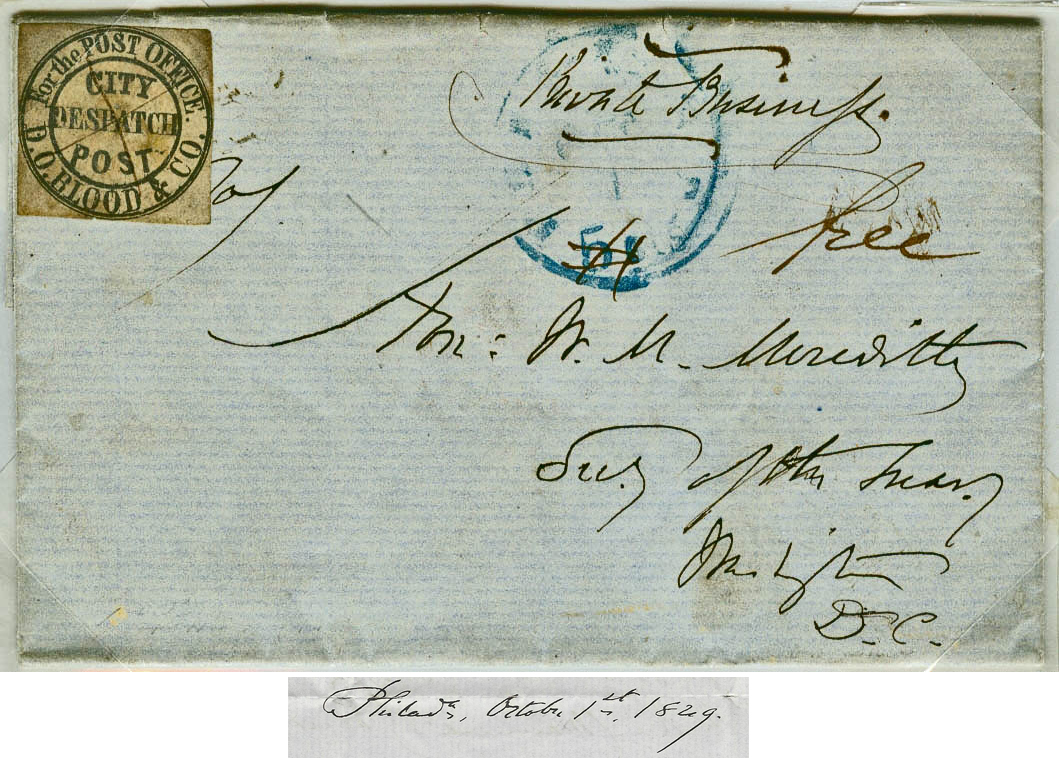 For the POST OFFICE.
CITY
DESPATCH
POST
D.O. BLOOD & CO.
Private Business.
free
5
Hon: W. M. Meredith
Secy of the Treasy
Washington
D.C.
Philada, October 1st, 1849.